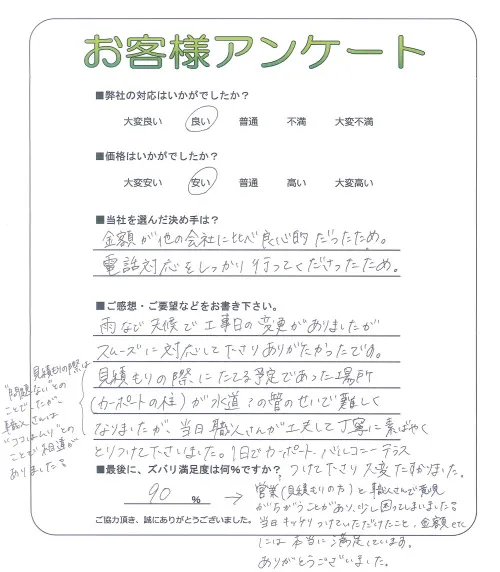 お客様アンケート
■弊社の対応はいかがでしたか？
大変良い 良い 普通 不満 大変不満
■価格はいかがでしたか？
大変安い 安い 普通 高い 大変高い
■当社を選んだ決め手は？
金額が他の会社に比べ良心的だったため。
電話対応をしっかり行ってくださったため。
■ご感想・ご要望などをお書き下さい。
雨など天候で工事日の変更がありましたが
スムーズに対応して下さりありがたかったです。
見積もりの際にたてる予定であった場所
(カーポートの柱)が水道？の管のせいで難しく
なりましたが、当日職人さんが工夫して丁寧に素ばやく
とりつけて下さいました。1日でカーポート、バルコニーテラス
つけて下さり大変たすかりました。
見積もりの際は
"問題ない"との
ことでしたが、
職人さんは
"ココはムリ"との
ことで相違が
ありました。
■最後に、ズバリ満足度は何%ですか？
90 %
→ 営業(見積もりの方)と職人さんで意見
がちがうことがあり、少し困ってしまいました。
当日キッチリつけていただけたこと、金額etc
には本当に満足しています。
ありがとうございました。
ご協力頂き、誠にありがとうございました。